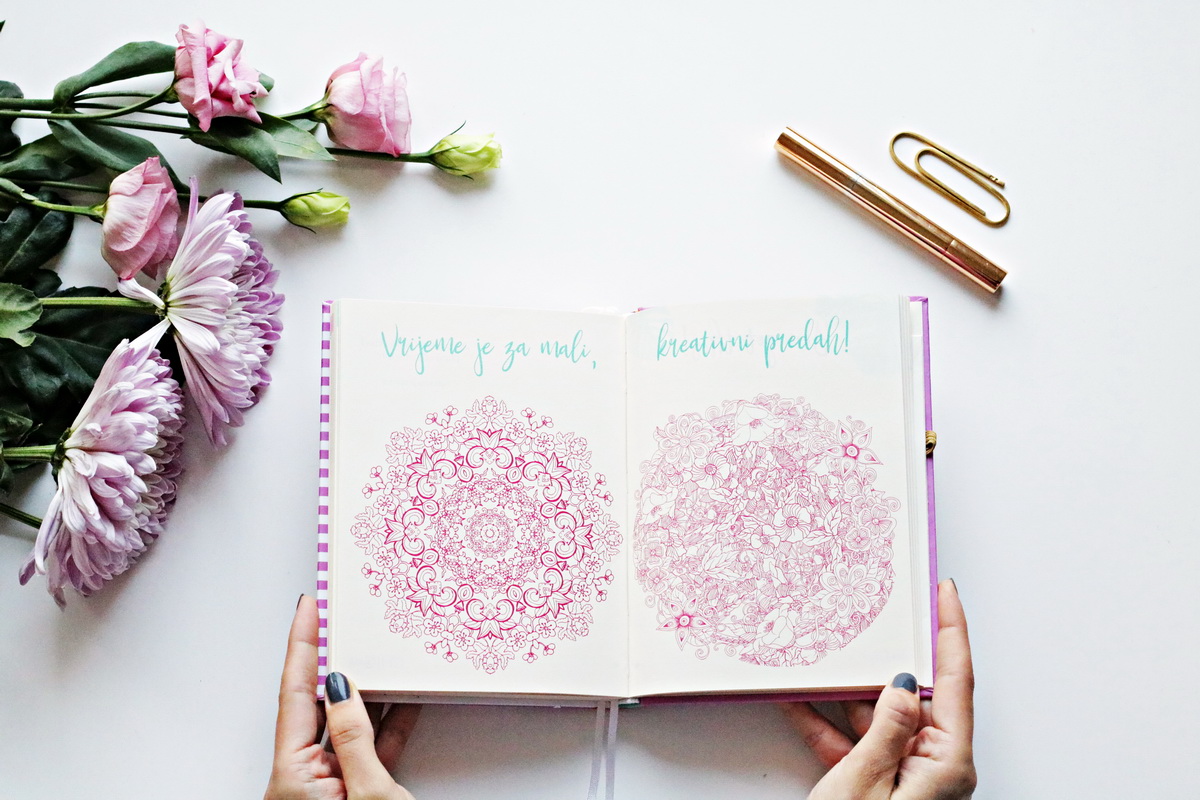 Vrijeme je za mali,
kreativni predah!